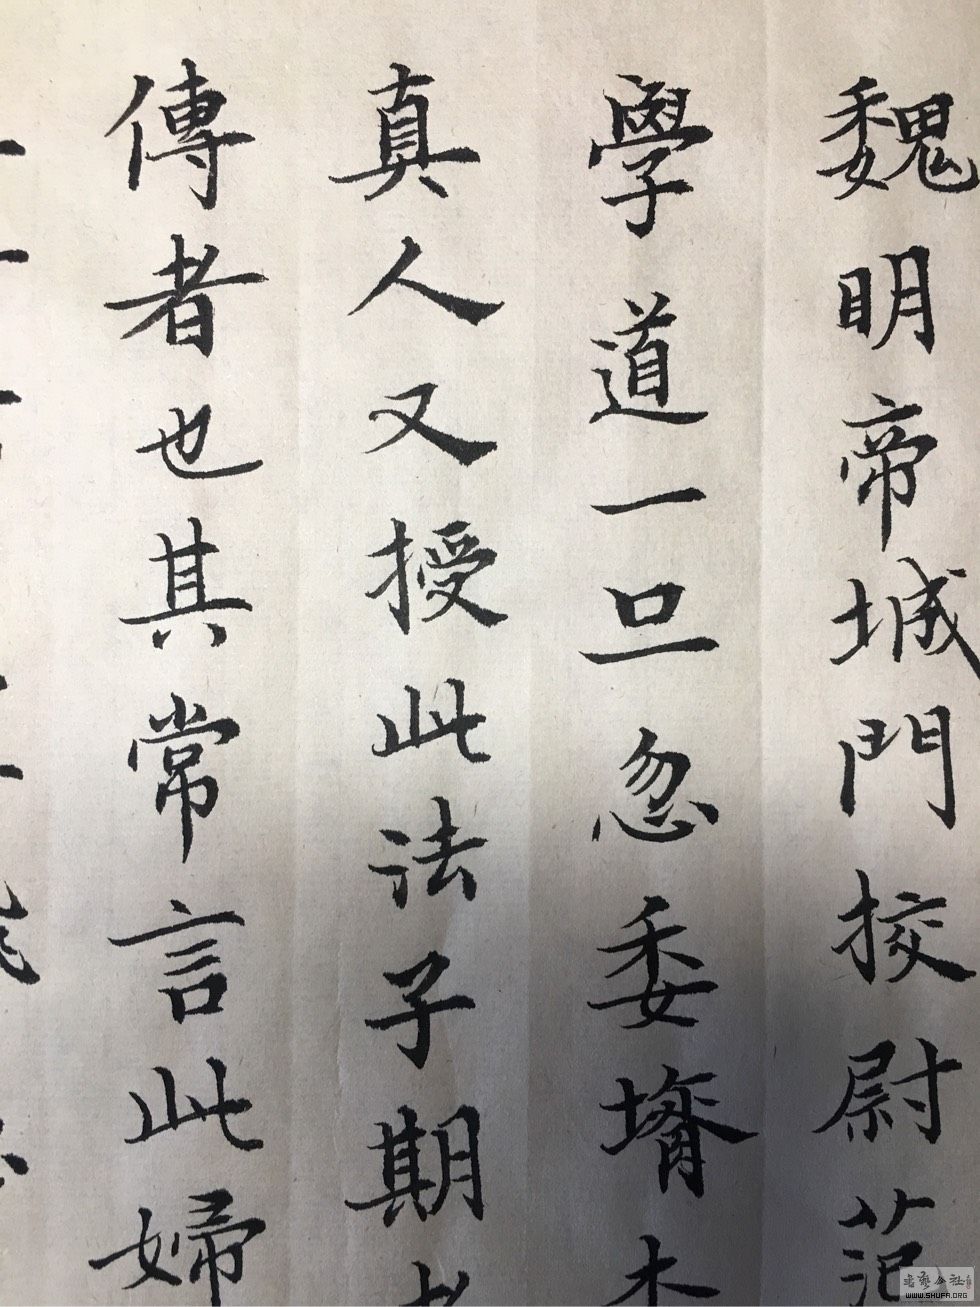 魏明帝城門挍尉范
學道一旦忽委壻
真人又授此法子期
傳者也其常言此婦
書藝公社
WWW.SHUFA.ORG